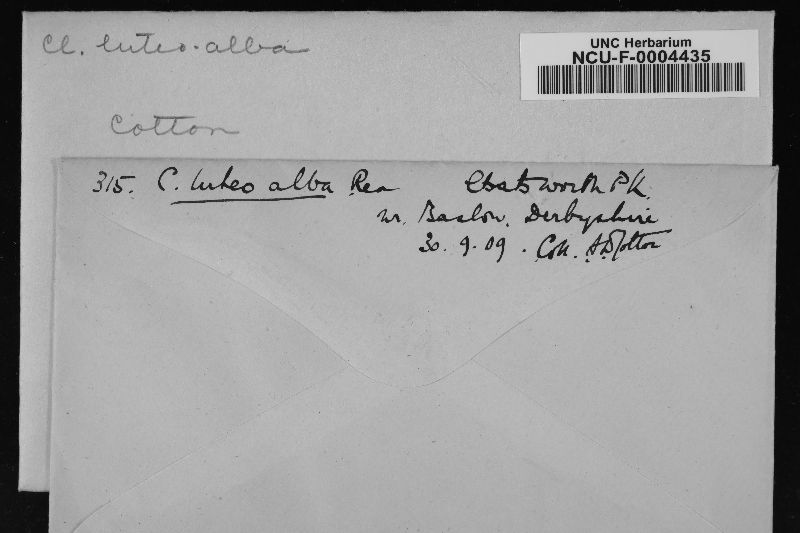 Cl. luteo-alba
UNC Herbarium
NCU-F-0004435
Cotton
315. C. luteo alba Rea Chatsworth PK.
nr. Baslow. Derbyshire
30. 9. 09. Coll. A.D. Cotton